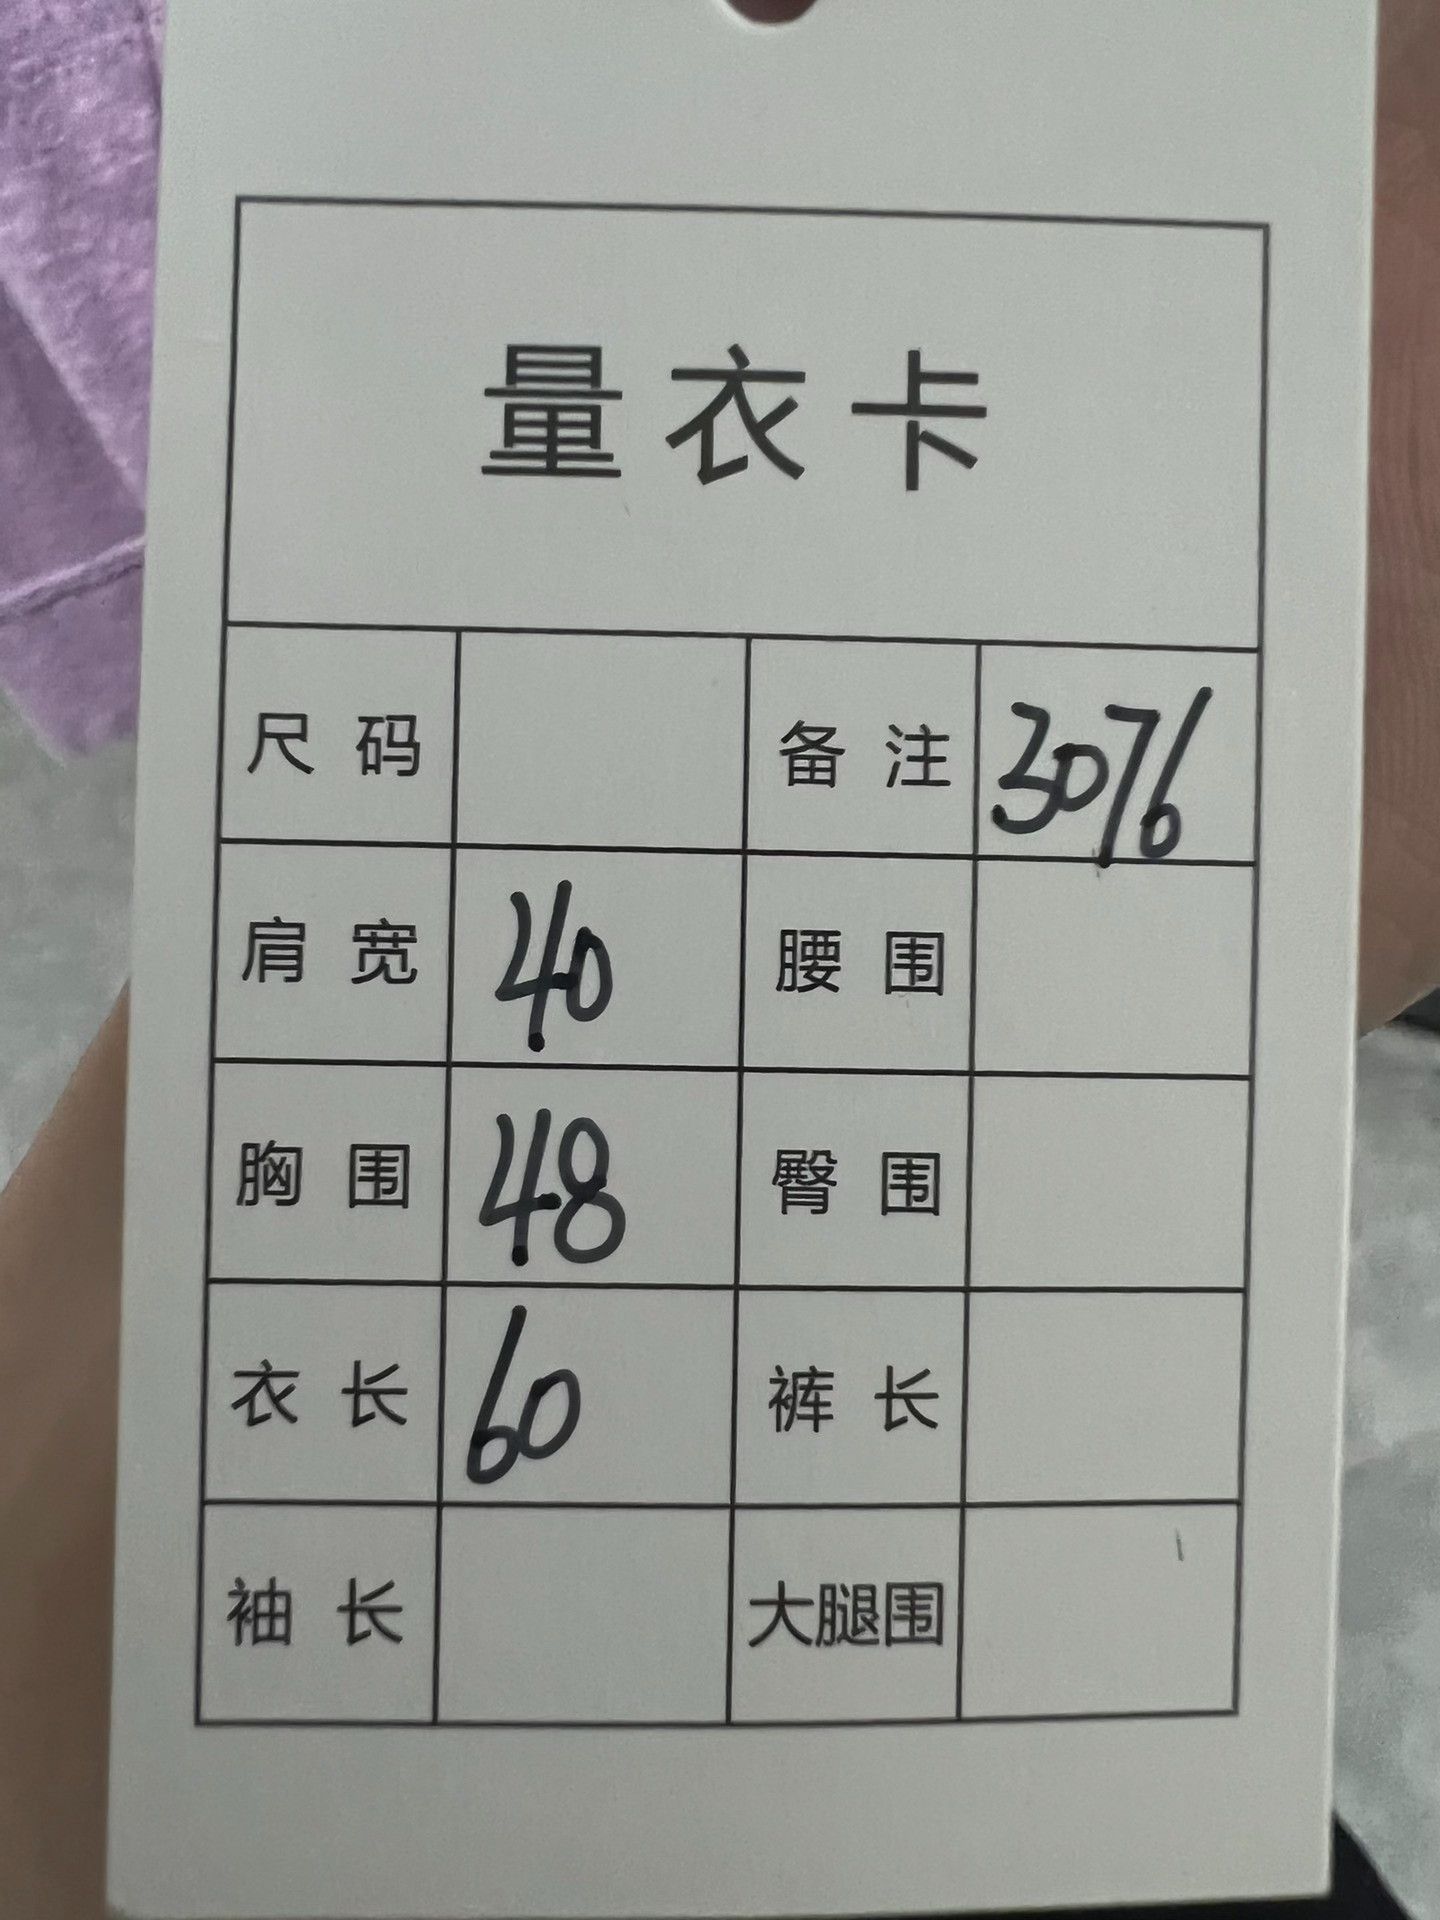 量衣卡
尺码 备注 3076
肩宽 40 腰围
胸围 48 臀围
衣长 60 裤长
袖长 大腿围